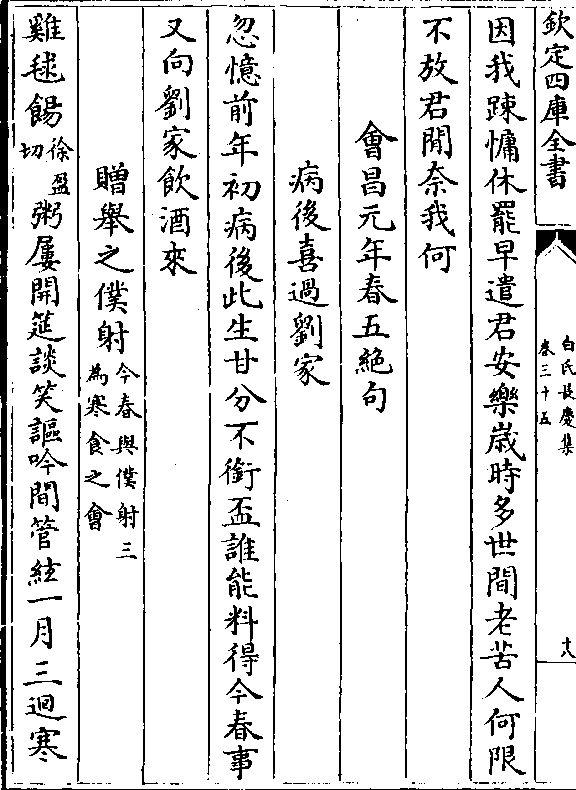 欽定四庫全書
白氏長慶集
卷三十五
十八
因我踈慵休罷早遣君安樂嵗時多世間老苦人何限
不放君閒奈我何
會昌元年春五絶句
病後喜過劉家
忽憶前年初病後此生甘分不銜盃誰能料得今春事
又向劉家飲酒來
贈舉之僕射今春與僕射三為寒食之會
雞毬餳徐盈切粥屢開筵談笑謳吟間管絃一月三迴寒